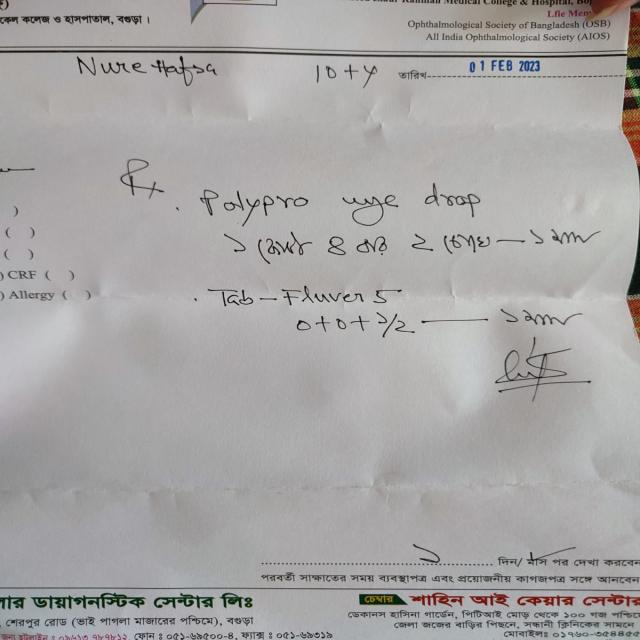 কেল কলেজ ও হাসপাতাল, বগুড়া।
Rahman Medical College & Hospital, Bo
Life Mem
Ophthalmological Society of Bangladesh (OSB)
All India Ophthalmological Society (AIOS)
Nure Hafsa 10+y তারিখ 01 FEB 2023
Rx
)
( )
( )
) CRF ( )
) Allergy ( )
. Polypro eye drop
১ ফোটা ৪ বার ২ চোখে — ১ মাস
. Tab - Fluver 5
0+0+১/২ — ১ মাস
১ দিন/ মাস পর দেখা করবেন
পরবর্তী সাক্ষাতের সময় ব্যবস্থাপত্র এবং প্রয়োজনীয় কাগজপত্র সঙ্গে আনবেন
লার ডায়াগনস্টিক সেন্টার লিঃ
, শেরপুর রোড (ভাই পাগলা মাজারের পশ্চিমে), বগুড়া
ফোন : ০৫১-৬৯৫০০-৪, ফ্যাক্স : ০৫১-৬৯৩১৯
চেম্বার শাহিন আই কেয়ার সেন্টার
ডেকানস হাসিনা গার্ডেন, পিটিআই মোড় থেকে ১০০ গজ পশ্চিমে
জেলা জজের বাড়ির পিছনে, সন্ধানী ক্লিনিকের সামনে
মোবাইলঃ ০১৭৬০-৩৫৪৪